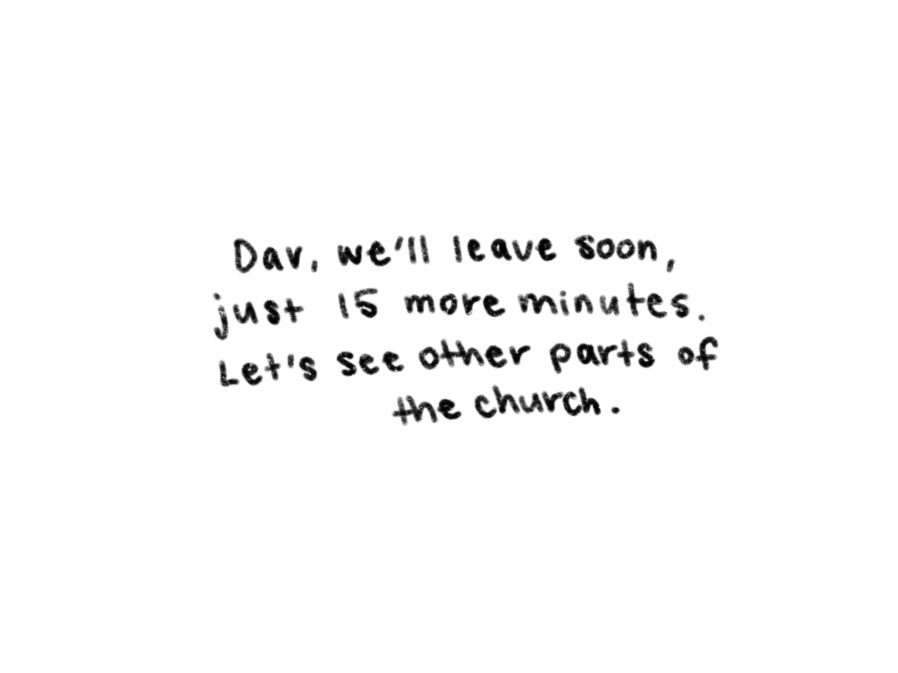 Dav, we'll leave soon,
just 15 more minutes.
Let's see other parts of
the church.